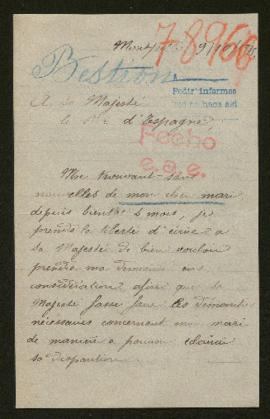 78956
Bestion
A Sa Majesté
le Roi d'Espagne
Pedir informes
Fecho
Me trouvant sans
nouvelles de mon cher mari
depuis bientôt 2 mois, je
prends la liberté d'écrire à
sa Majesté de bien vouloir
prendre ma demande en
considération afin que sa
Majesté fasse faire les démarches
nécessaires concernant mon mari
de manière à pouvoir
sa disparition